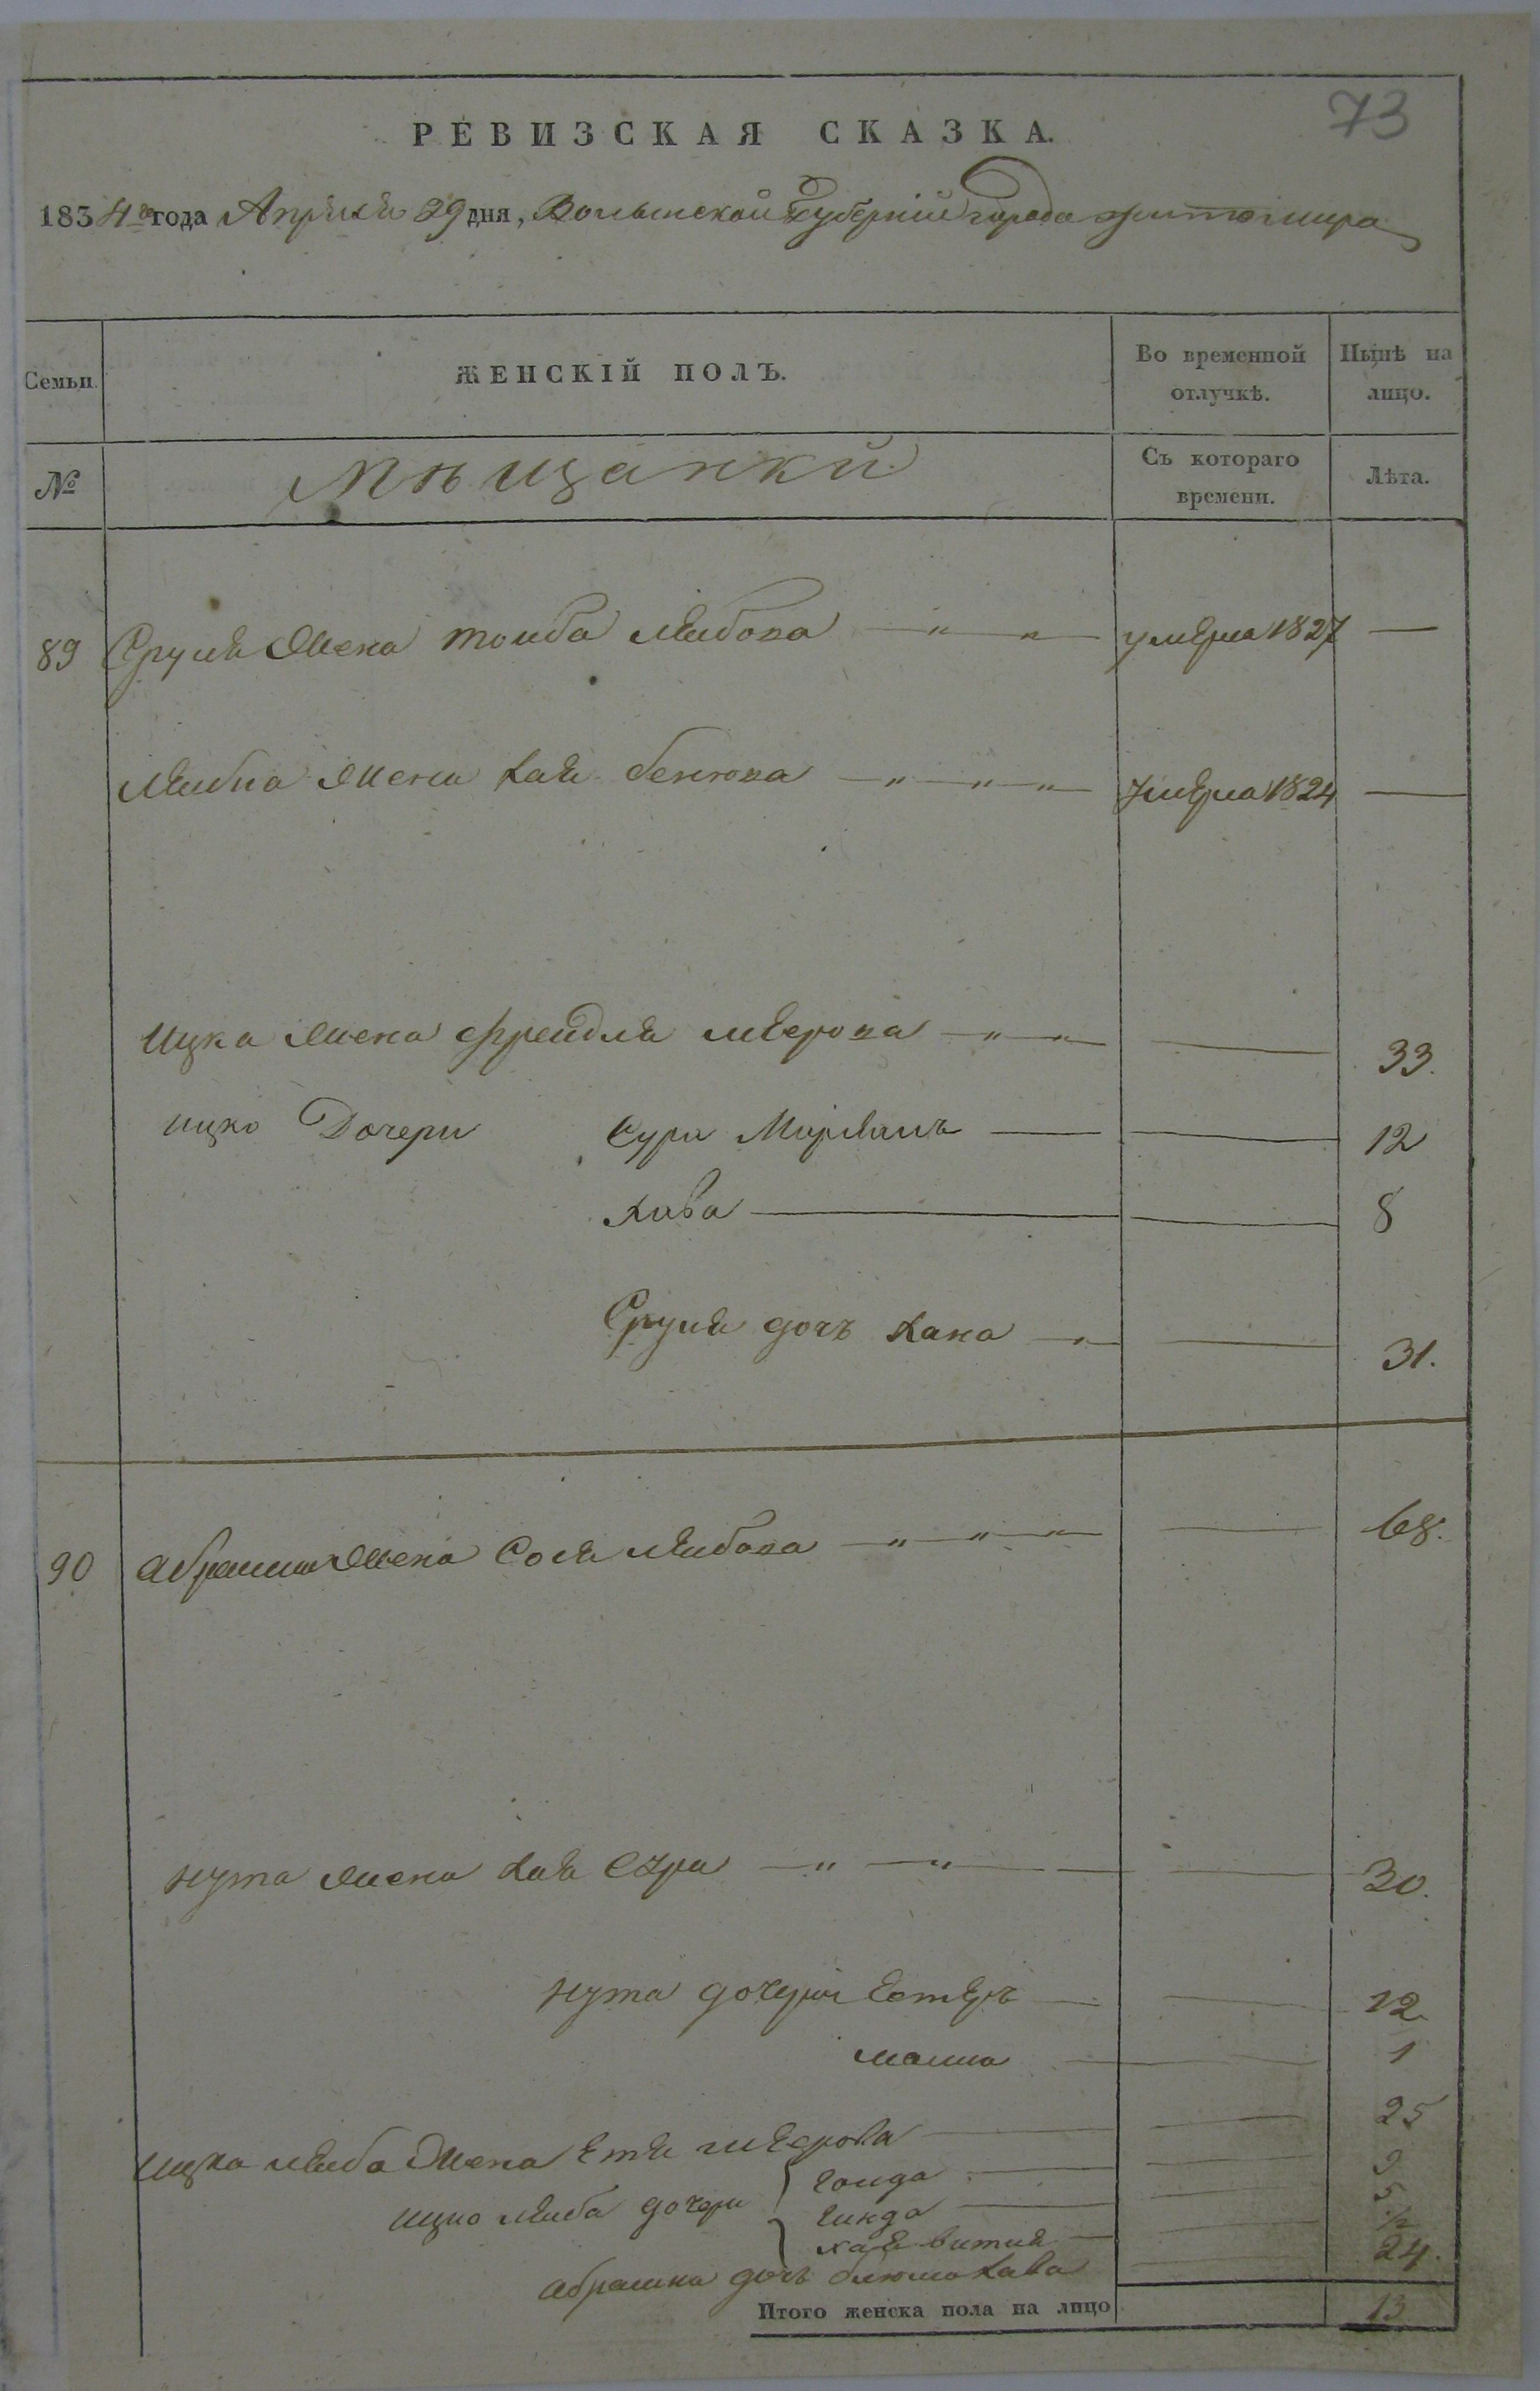 73
РЕВИЗСКАЯ СКАЗКА.
1834го года Апреля 29 дня, Волынской Губернии города Житомира
Семьи.
ЖЕНСКІЙ ПОЛЪ.
Во временной отлучкѣ.
Нынѣ на лицо.
№
Мѣщанки
Съ котораго времени.
Лѣта.
89 Сруля жена Тоиба Лейбова — „ — „ — умерла 1827 —
Лейбиа жена Хая Бенюва — „ — „ — „ — умерла 1824 —
Ицка жена Фрейдля Мерова — „ — „ — — 33.
Ицко Дочери Сура Мирьямъ — — 12
Хава — — 8
Сруля дочъ Хана — „ — — 31.
90 Абрамка жена Сося Лейбова — „ — „ — — 68.
Нута жена Хая Сура — „ — „ — — 30.
Нута дочери Естеръ — — 12
Малка — — 1
Ицка Лейба жена Етя Мерова — — 25
Ицко Лейба дочери Гольда — — 9
Гинда — — 5
Хая — 1/2
Абрамка дочъ Блюма Хава — 24.
Итого женска пола на лицо 13